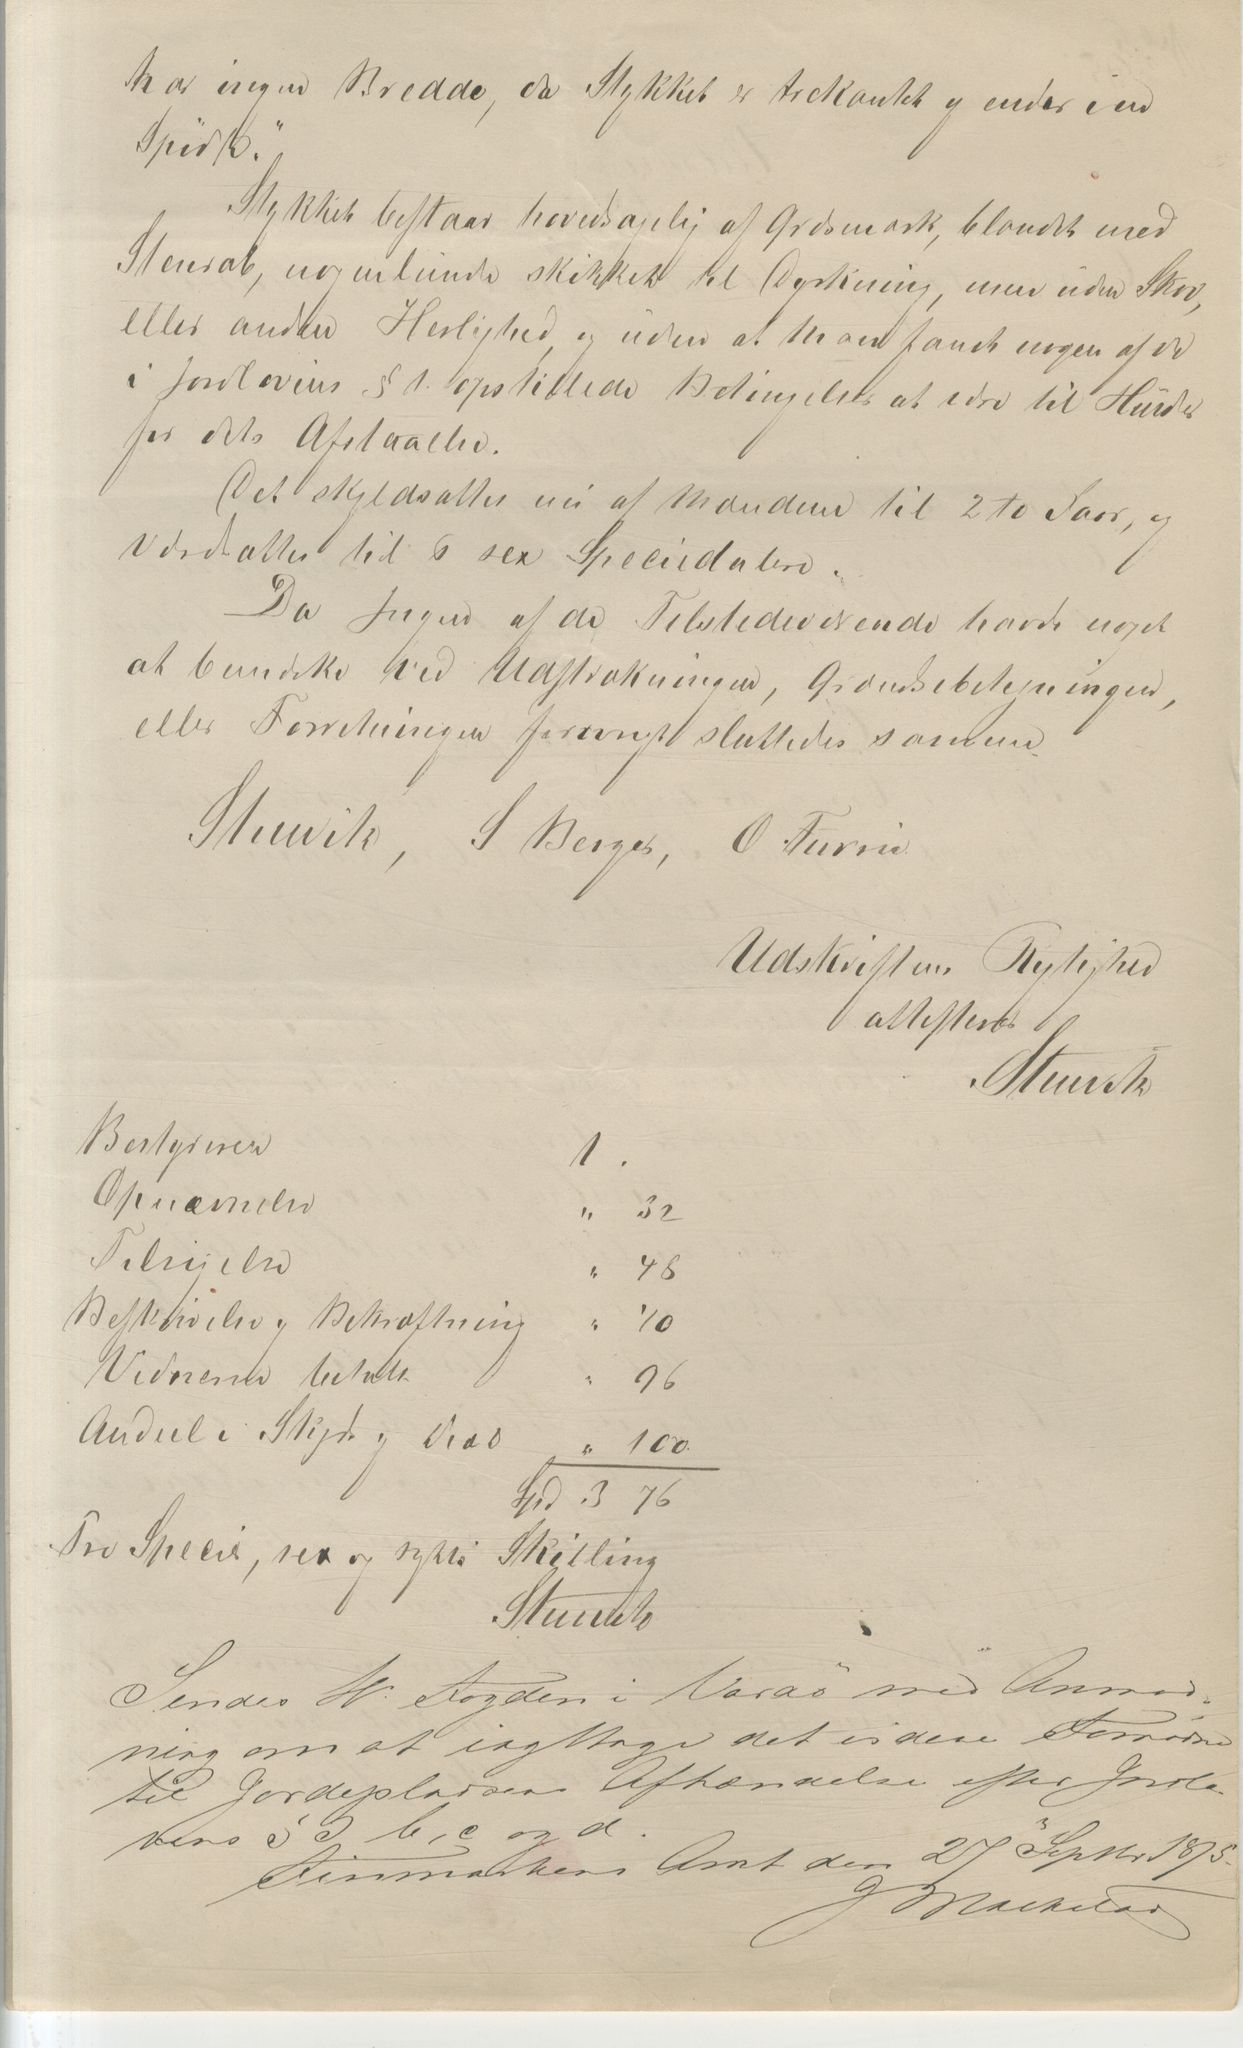 har ingen Bredde, da Stykket er trekantet og ender i en
Spids."
Stykket bestaar hovedsagelig af Græsmark, blandet med
Stenrab, nogenlunde skikket til Dyrkning, men uden Skov,
eller anden Herlighed, og uden at Man fandt nogen af de
i Jordlovens § 1. opstillede Betingelser at være til Hinder
for dets Afstaaelse.
Det skyldsattes nu af Mændene til 2 to
Værdsattes til 6 sex Speciedalere.
Da Ingen af de Tilstedeværende havde noget
at bemærke ved Udstrækningen, Grændsebetegningen,
eller Forretningen forøvrigt sluttedes samme.
Stuwik, S Berger, O
Udskriftens Rigtighed
attesteres
Stuwik
Bestyreren 1 .
Opnævnelse " 32
Tilsigelse " 48
Beskrivelse og Bekræftning " 40
Vidnerne betalt " 96
Andeel i Skyds og Diæt " 100
Spd 3 76
Tre Specier, sex og sytti Skilling
Stuwik
Sendes Hr. Fogden i Vardö med Anmod-
ning om at iagttage det videre Fornødne
til Jordepladsens Afhændelse efter Jordlo-
vens § 3 b, c og d.
Finmarkens Amt den 27 Septbr 1875.